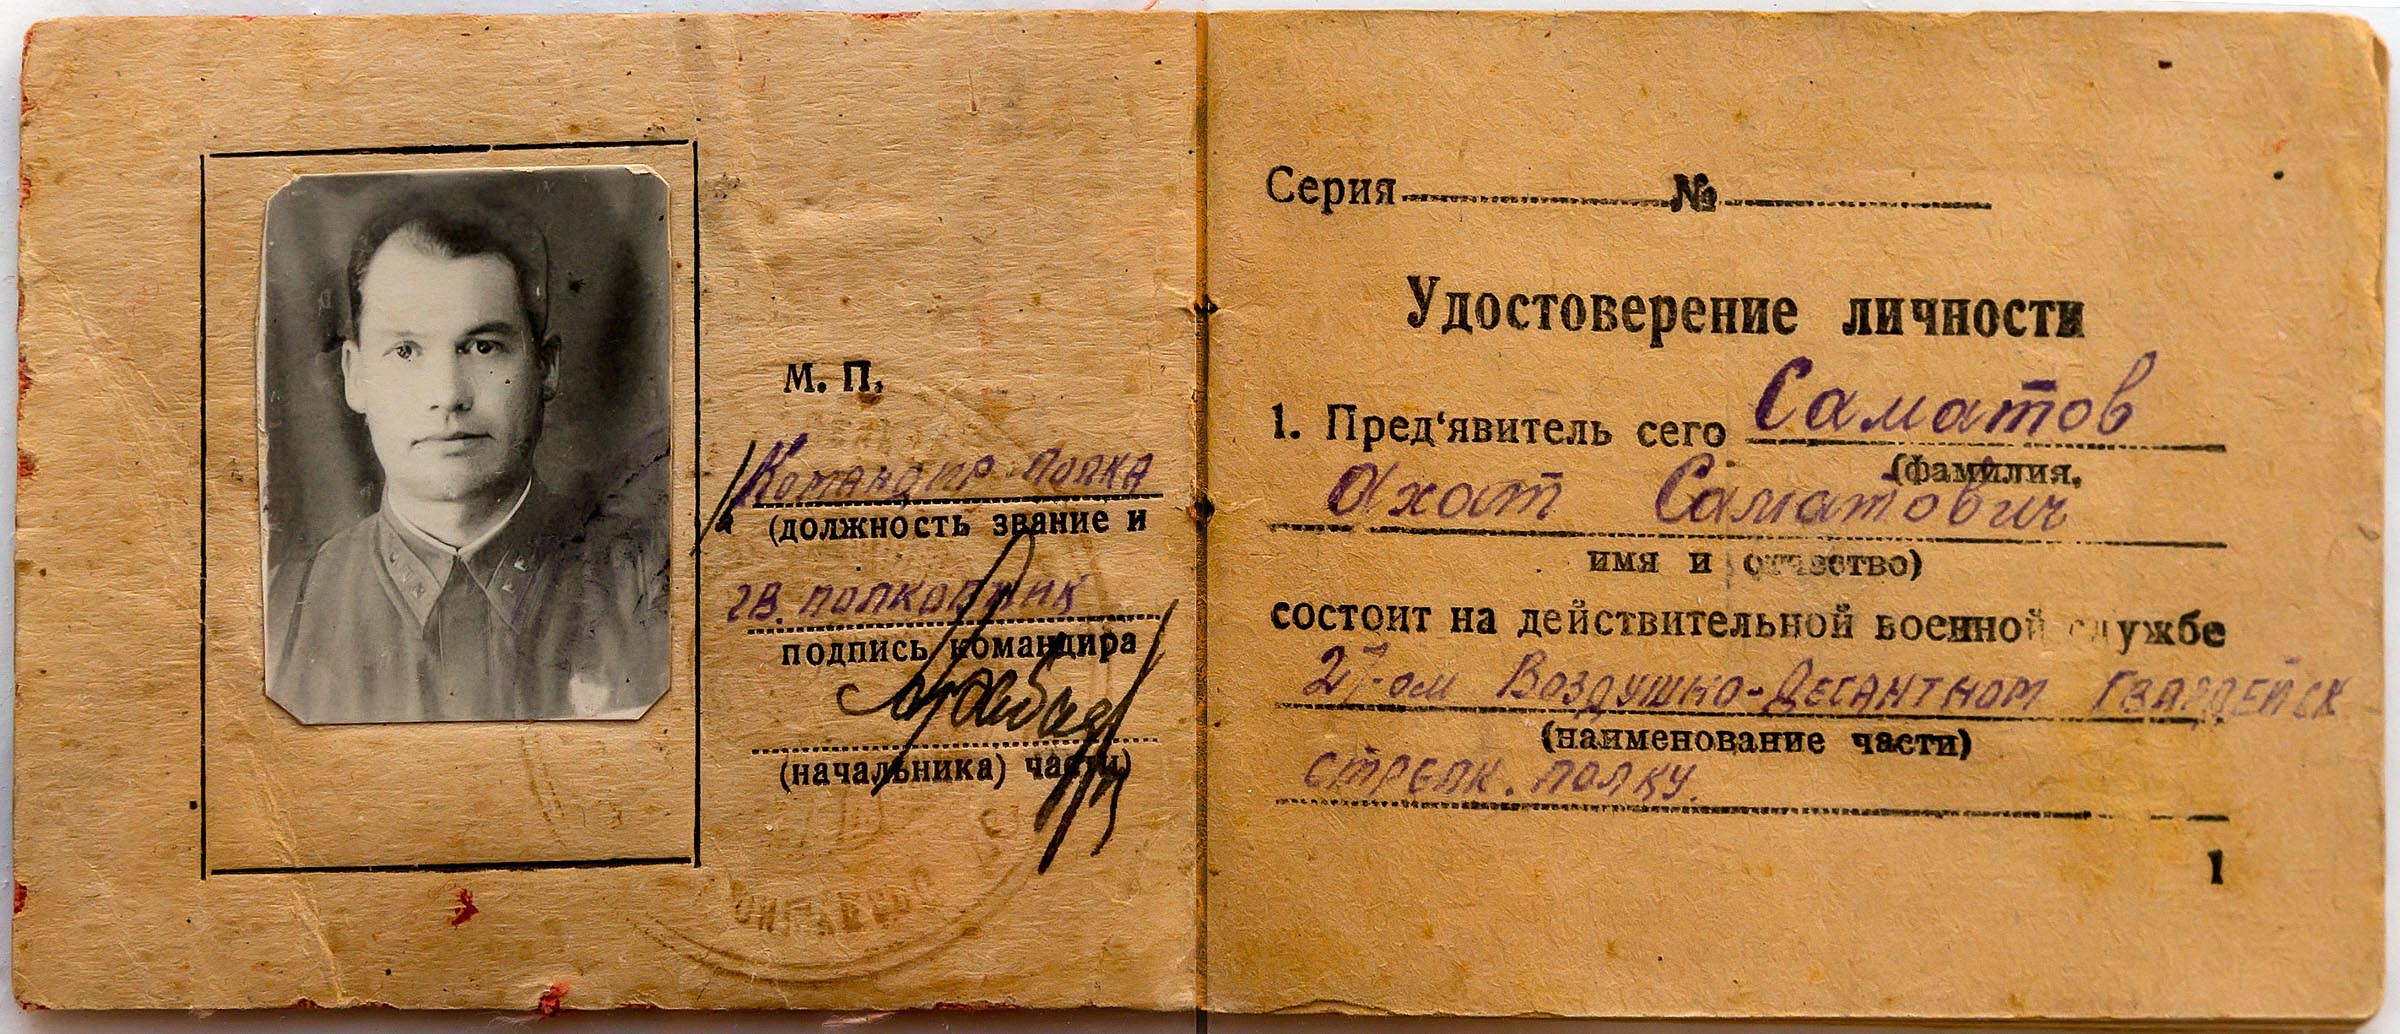 М. П.
Командир полка
(должность звание и
гв. полковник
подпись командира
(начальника) части)
Серия № 
Удостоверение личности
1. Пред‘явитель сего Саматов
(фамилия,
Ахат Саматович
имя и отчество)
состоит на действительной военной службе
27-ом Воздушно-Десантном Гвардейск
(наименование части)
стрелк. полку.
1